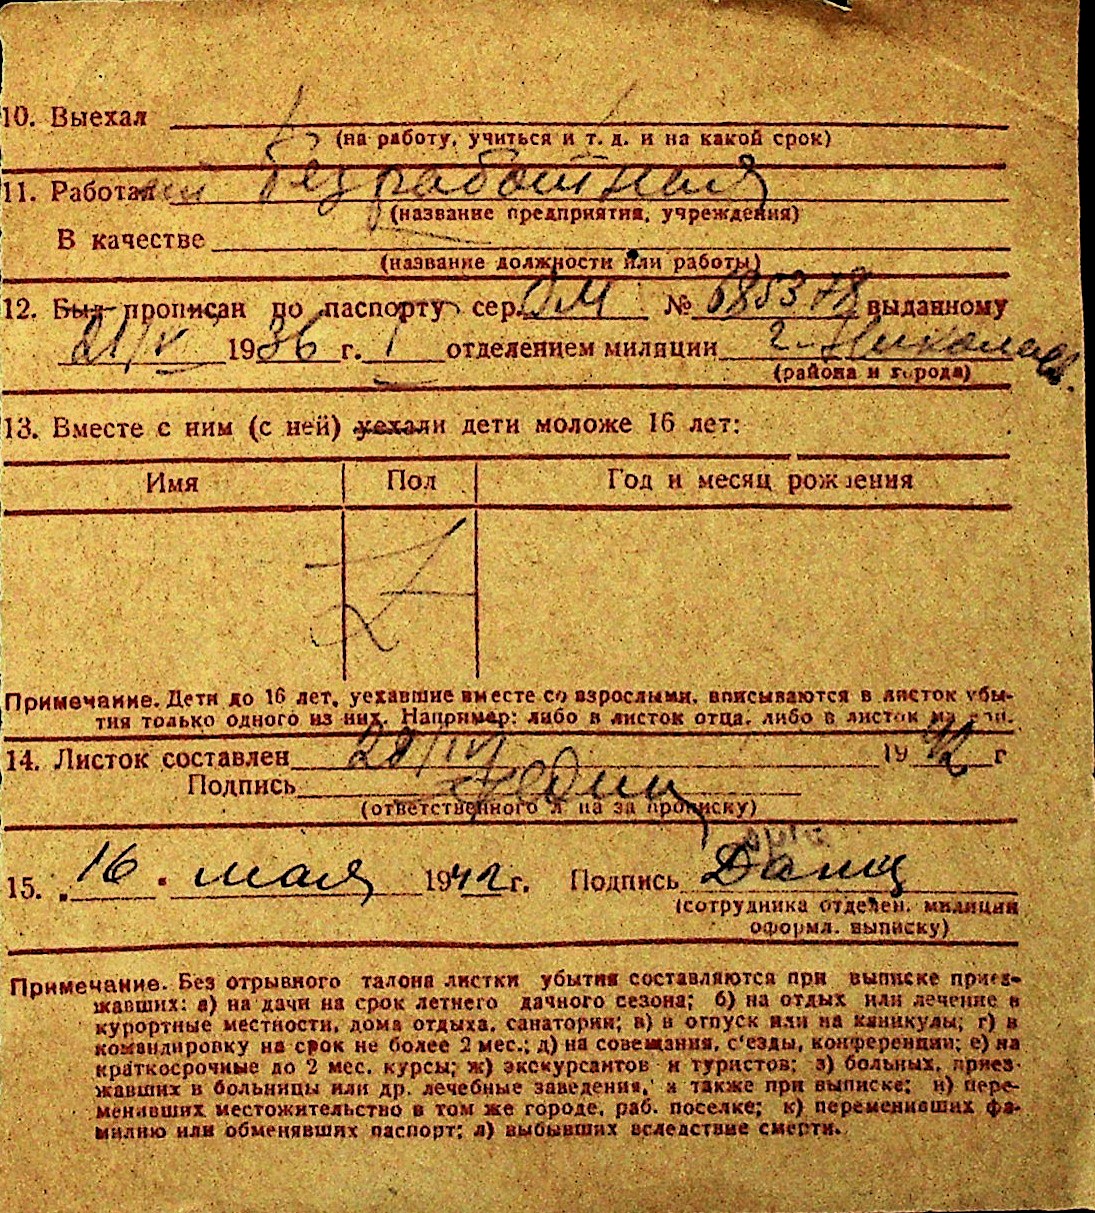 10. Выехал
(на работу, учиться и т. д. и на какой срок)
11. Работал безработная
(название предприятия, учреждения)
В качестве
(название должности или работы)
12. Был прописан по паспорту сер. ОМ № 685378 выданному
21/V 1936 г. 1 отделением милиции г. Николаев.
(района и города)
13. Вместе с ним (с ней) уехали дети моложе 16 лет:
Имя Пол Год и месяц рождения
Примечание. Дети до 16 лет, уехавшие вместе со взрослыми, вписываются в листок убы-
тия только одного из них. Например: либо в листок отца, либо в листок
14. Листок составлен 1942 г
Подпись
(ответственного л на за прописку)
15. „16" мая 1942 г. Подпись
(сотрудника отделен. милиции
оформл. выписку)
Примечание. Без отрывного талона листки убытия составляются при выписке приез-
жавших: а) на дачи на срок летнего дачного сезона; б) на отдых или лечение в
курортные местности, дома отдыха, санатории; в) в отпуск или на каникулы; г) в
командировку на срок не более 2 мес.; д) на совещания, с'езды, конференции; е) на
краткосрочные до 2 мес. курсы; ж) экскурсантов и туристов; з) больных, приез-
жавших в больницы или др. лечебные заведения, а также при выписке; и) пере-
менивших местожительство в том же городе, раб. поселке; к) переменивших фа-
милию или обменявших паспорт; л) выбывших вследствие смерти.